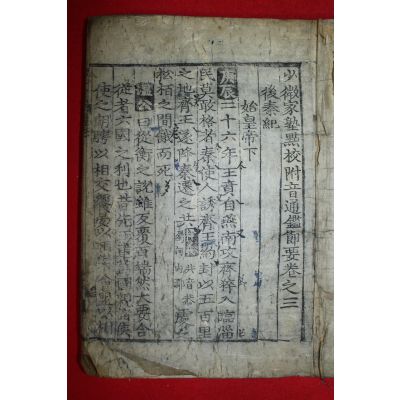 少微家塾點校附音通鑑節要卷之三
後秦紀
始皇帝下
庚辰二十六年王賁自燕南攻齊猝入臨淄
民莫敢格者秦使人誘齊王約封以五百里
之地齊王遂降秦遷之共處之
松柏之間餓而死
溫公曰從衡之說雖反覆百端然大要合
從者六國之利也昔先王建萬國親諸侯
使之朝聘以相交